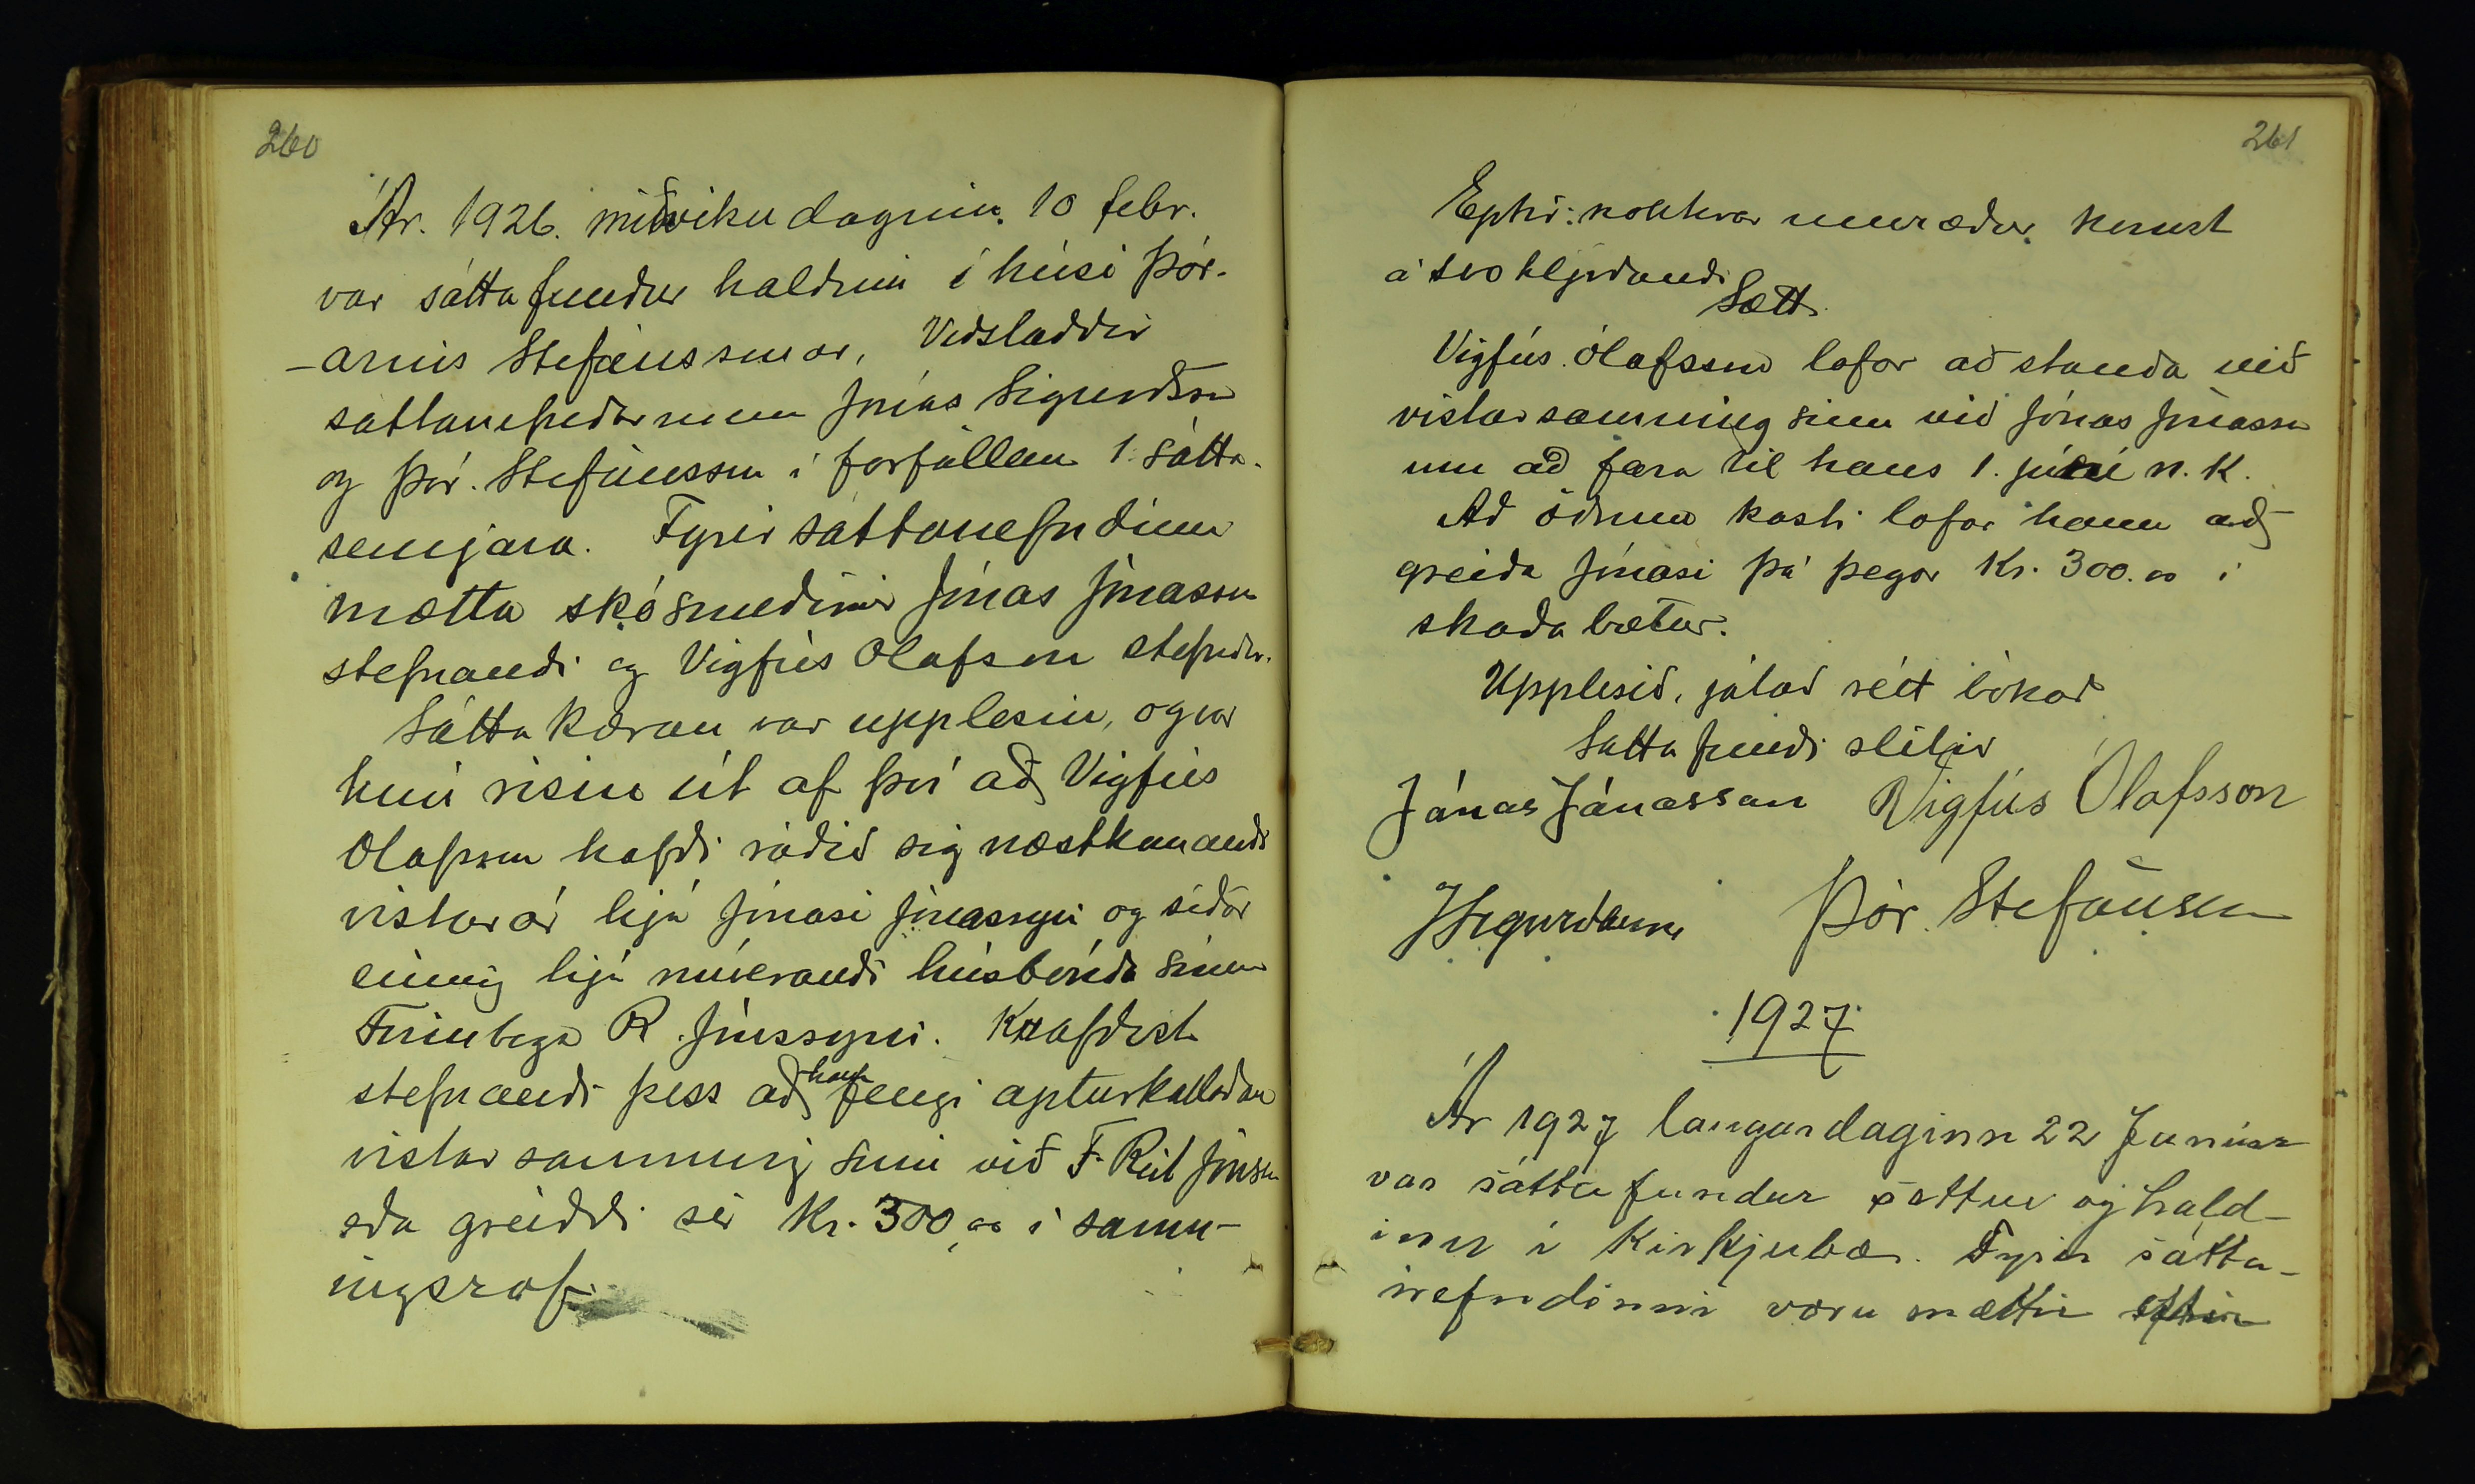 260
Ár. 1926. miðvikudaginn. 10 febr.
var sáttafundur haldinn í húsi Þór-
-arins Stefánssonar, Viðstaddir
sáttanefndarmenn Jónas Sigurdsson
og Þór. Stefánsson í forföllum 1. sátta-
semjara. Fyrir sáttanefndinni
mætta skósmedirnir Jónas Jónasson
stefnandi og Vigfús Olafsson stefndur.
Sátta kæran var upplesin, og var
hún risin út af því að Vigfús
Olafsson hafdi rádid sig næstkomandi
vistarár hjá Jónasi Jónassyni og sídar
einnig hjá núverandi húsbónda sínum
Finnboga R. Jónssyni. Krafdist
stefnandi þess að hann fengi apturkalladan
vistarsamning sinn við F. Rút Jónsson
eða greiddi sér Kr. 300,00 í samn-
ingsrof.
261
Eptir: nokkrar umrædur. komst
á svohljódandi
Sætt.
Vigfús Ólafsson lofar að standa við
vistarsamning sinn við Jónas Jónasson
um að fara til hans 1. júní n.k.
Ad ödrum kosti lofar hann að
greida Jónasi þá þegar Kr. 300.00 í
skada bætur.
Upplesið, játað rétt bókað
Sátta fundi slitið
Jónas Jónasson Vigfús Ólafsson
JSigurdsson Þór. Stefánsson
1927
Ár 1927 laugardaginn 22 Januar
var sáttafundur settur og hald-
inn í Kirkjubæ. Fyrir sátta-
nefndinni voru mættir